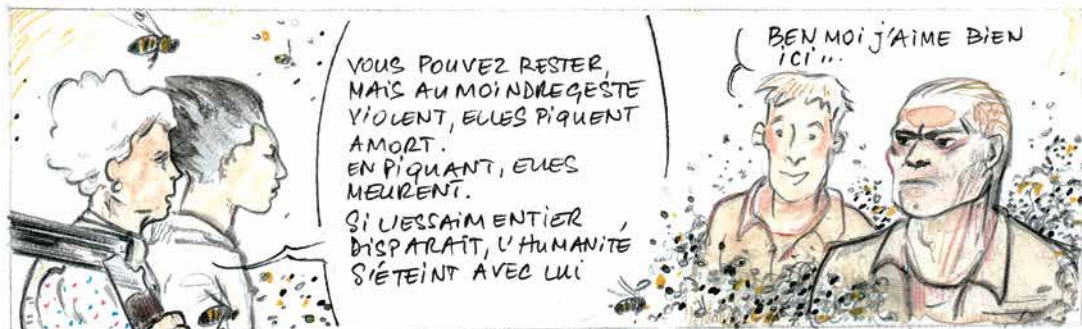 VOUS POUVEZ RESTER,
MAIS AU MOINDRE GESTE
VIOLENT, ELLES PIQUENT
A MORT.
EN PIQUANT, ELLES
MEURENT.
SI L'ESSAIM ENTIER
DISPARAÎT, L'HUMANITÉ
S'ÉTEINT AVEC LUI
BEN MOI J'AIME BIEN
ICI...